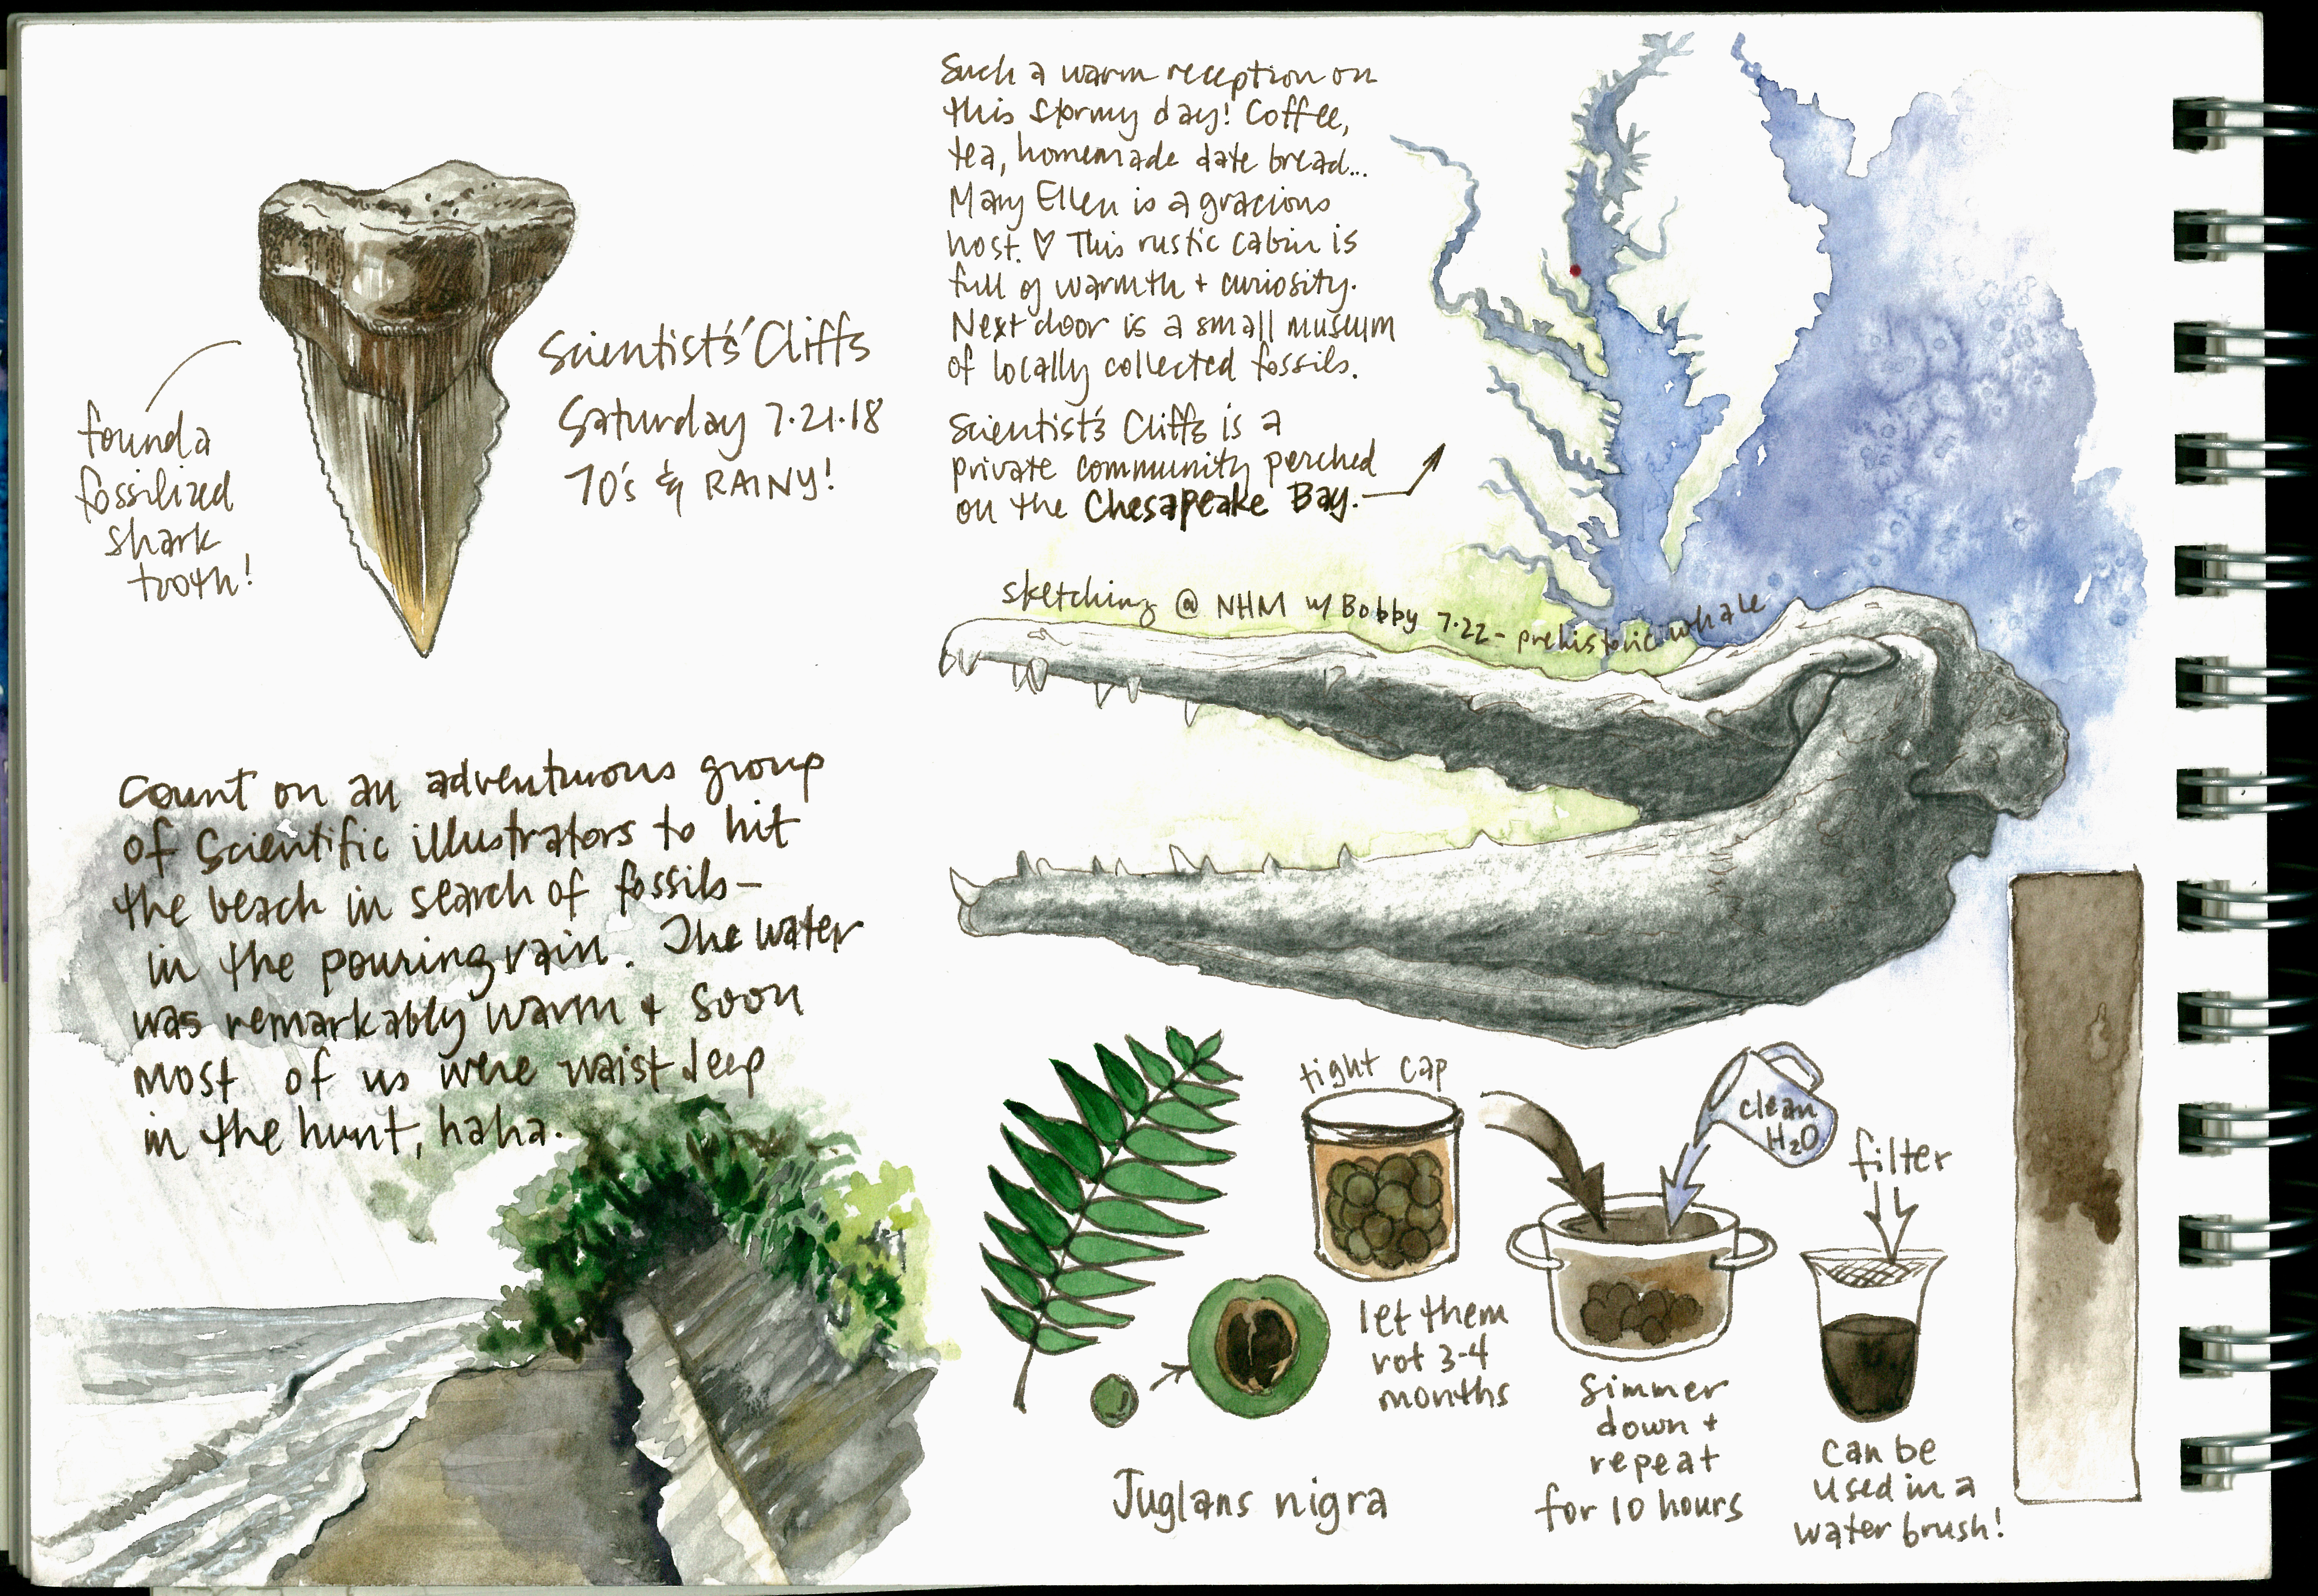 Scientist's' Cliffs
Saturday 7.21.18
70's & RAINY!
found a
fossilized
shark
tooth!
Count on an adventurous group
of scientific illustrators to hit
the beach in search of fossils–
in the pouring rain. The water
was remarkably warm + soon
most of us were waist deep
in the hunt, haha.
Such a warm reception on
this stormy day! Coffee,
tea, homemade date bread...
Mary Ellen is a gracious
host. ♡ This rustic cabin is
full of warmth + curiosity.
Next door is a small museum
of locally collected fossils.
Scientist's Cliffs is a
private community perched
on the Chesapeake Bay.
sketching @ NHM w/ Bobby 7.22 - prehistoric whale
tight cap
let them
rot 3-4
months
clean
H2O
simmer
down +
repeat
for 10 hours
filter
can be
used in a
water brush!
Juglans nigra